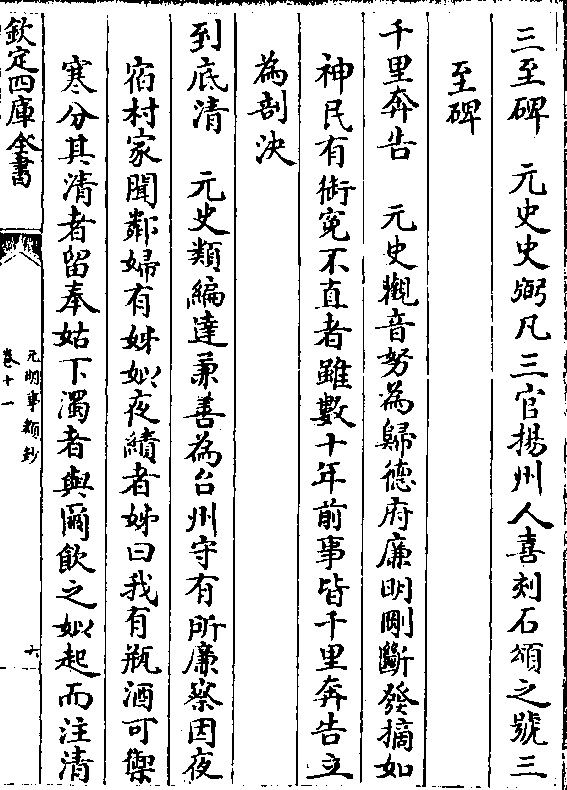 三至碑　元史史弼凡三官揚州人喜刻石頌之號三
至碑
千里奔告　元史觀音努為歸德府廉明剛斷發摘如
神民有銜寃不直者雖數十年前事皆千里奔告立
為剖決
到底清　元史類編達兼善為台州守有所廉察因夜
宿村家聞鄰婦有姊姒夜績者姊曰我有瓶酒可禦
寒分其清者留奉姑下濁者與爾飲之姒起而注清
欽定四庫全書
元明事類鈔
卷十一
十